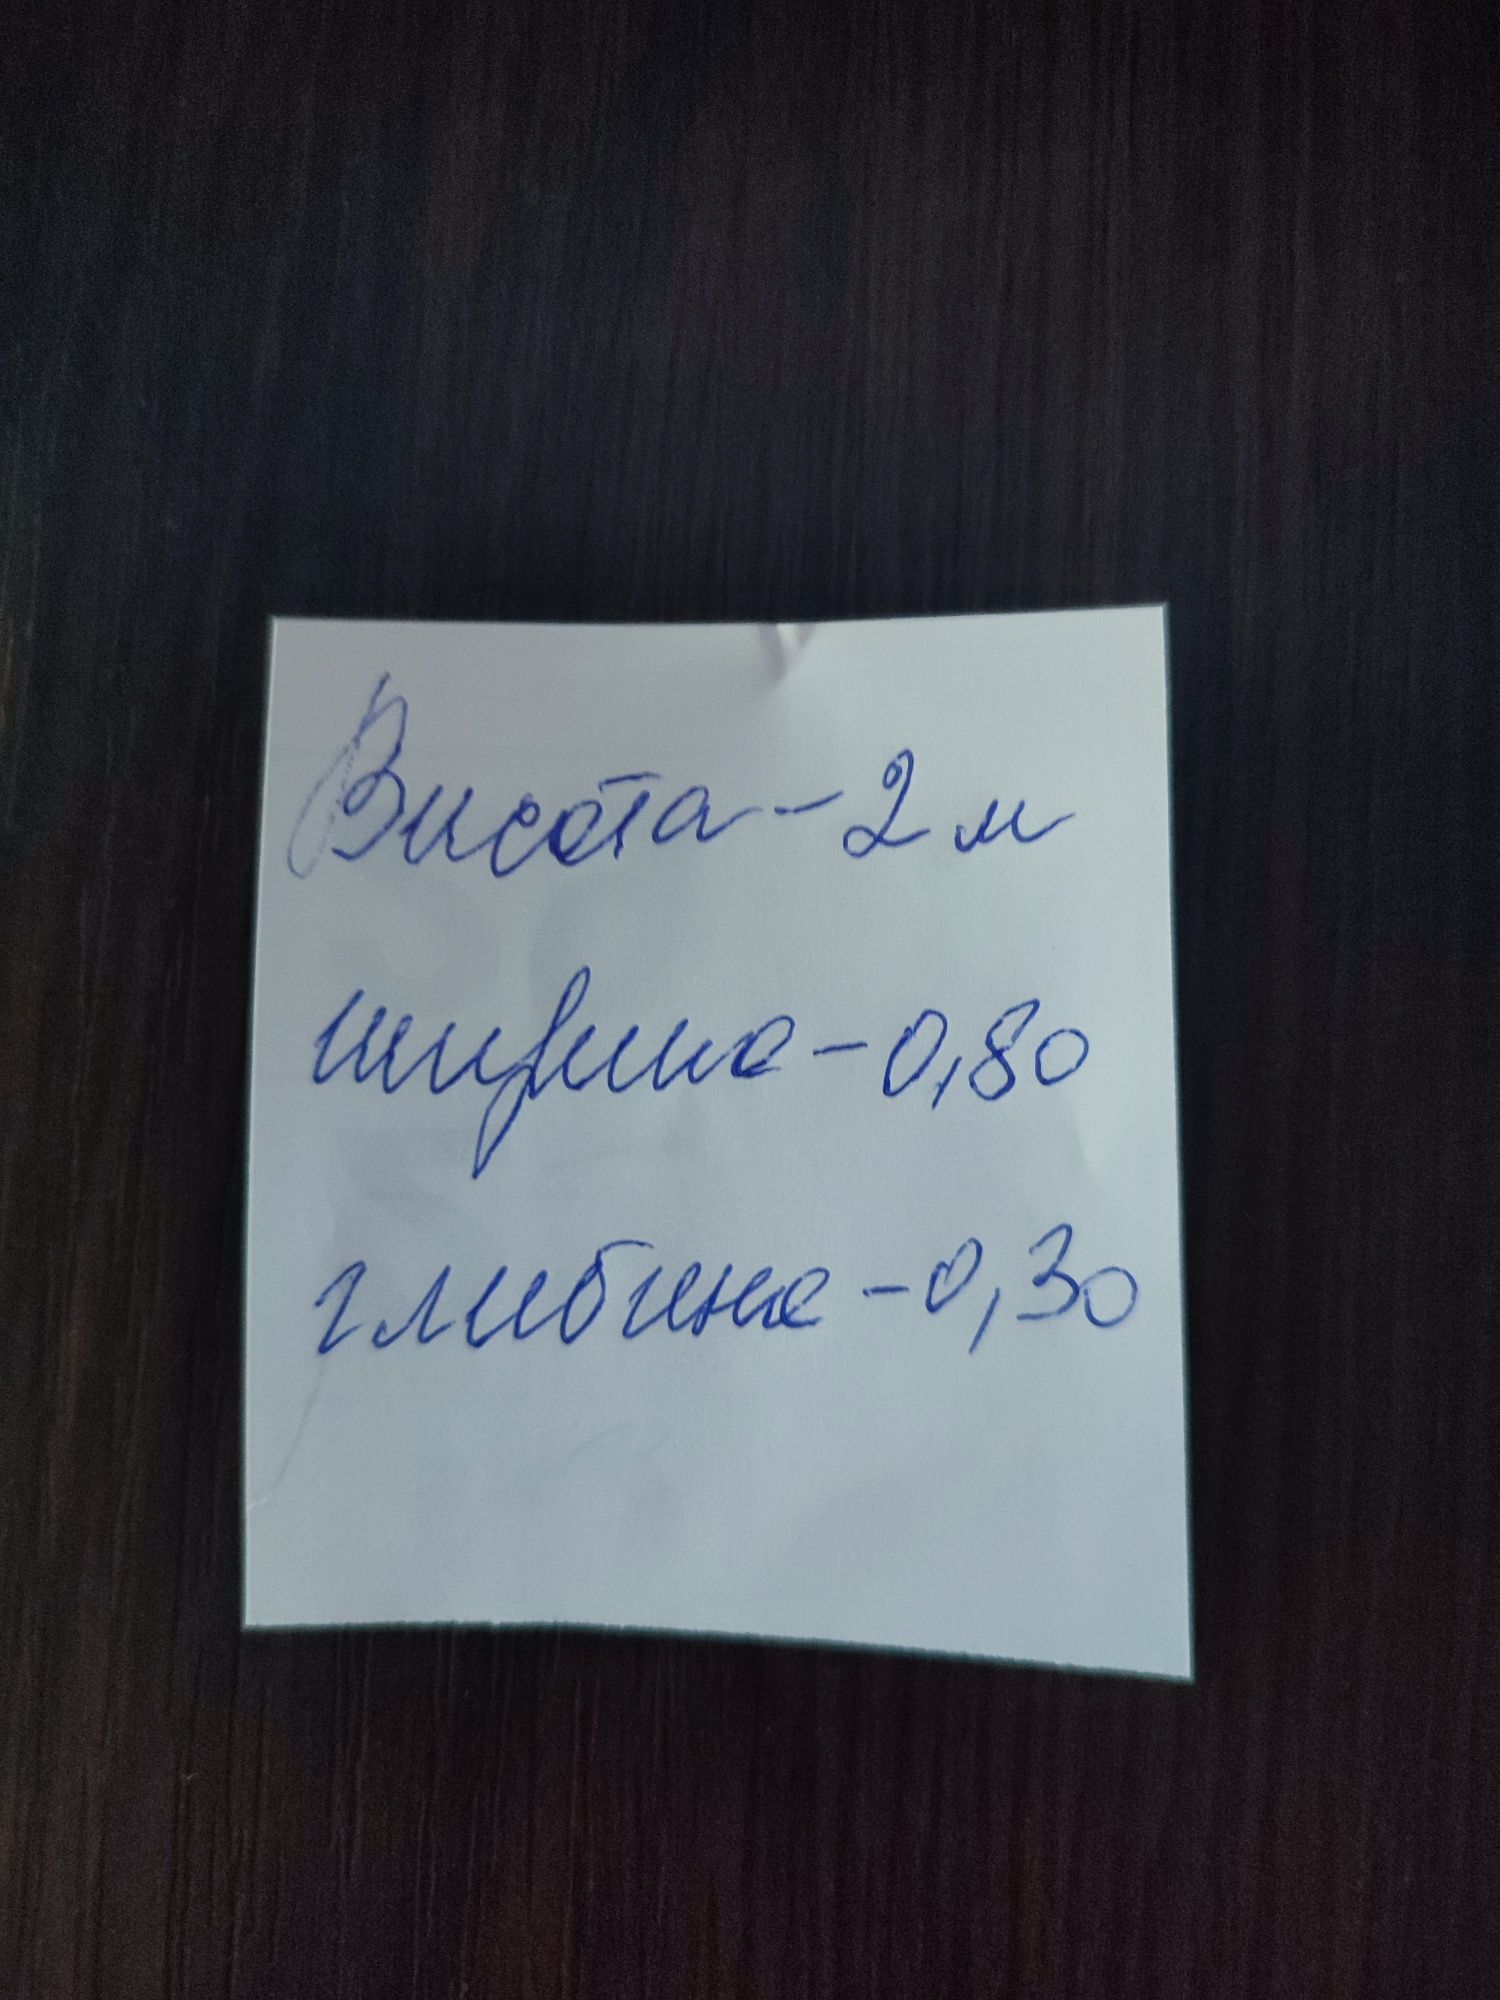 Висота - 2 м
ширина - 0,80
глибина - 0,30